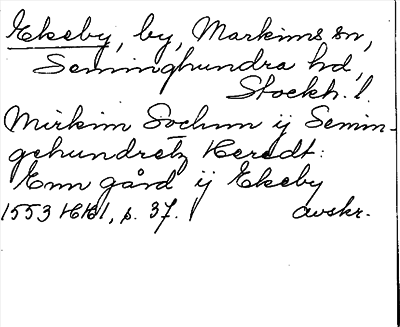 Ekeby, by, Markims sn,
Seminghundra hd,
Stockh. l.
Mirkim Sochnn ij Semin-
gehundretz Heredt:
Enn gård ij Ekeby
1553 HH1, p. 37. avskr.